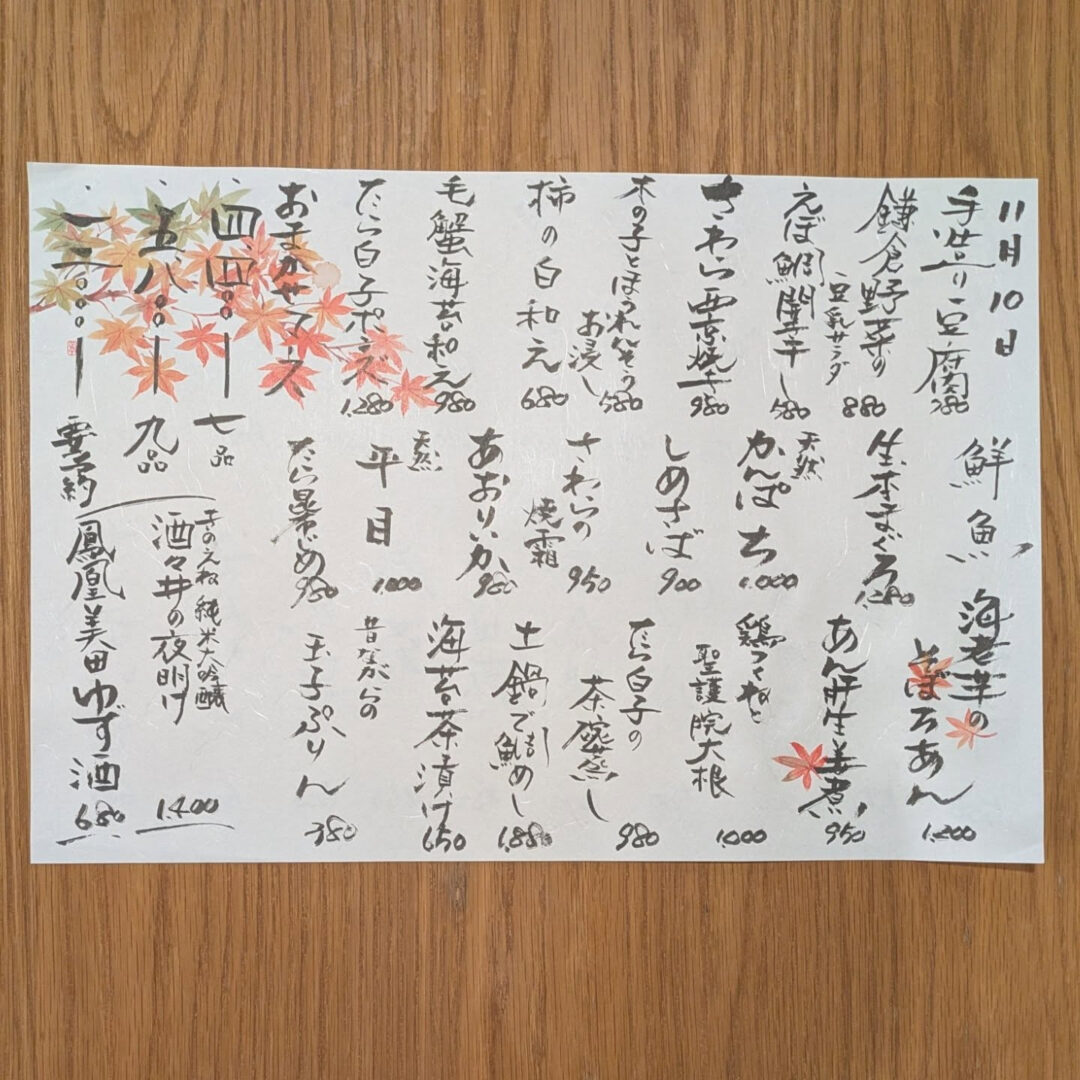 11月10日
手造り豆腐
780
鎌倉野菜の
豆乳サラダ
880
えぼ鯛開干し
580
さわら西京焼き
980
木の子とほうれんそう
お浸し
580
柿の白和え
680
毛蟹海苔和え
980
たら白子ポンズ
1,280
おまかせコース
・四、四〇〇ー
・五、八〇〇ー
・一三〇〇〇ー
鮮魚
生本まぐろ
1,280
天然
かんぱち
1,000
しめさば
900
さわらの
焼霜
950
あおりいか
980
天然
平目
1,000
たら昆布じめ
980
七品
九品
要予約
海老芋の
そぼろあん
1,200
あん肝生姜煮
950
鶏つくねと
聖護院大根
1,000
たら白子の
茶碗蒸し
980
土鍋で鯛めし
1,880
海苔茶漬け
650
昔ながらの
玉子ぷりん
380
子のえね 純米大吟醸
酒々井の夜明け
1,400
鳳凰美田ゆず酒
680